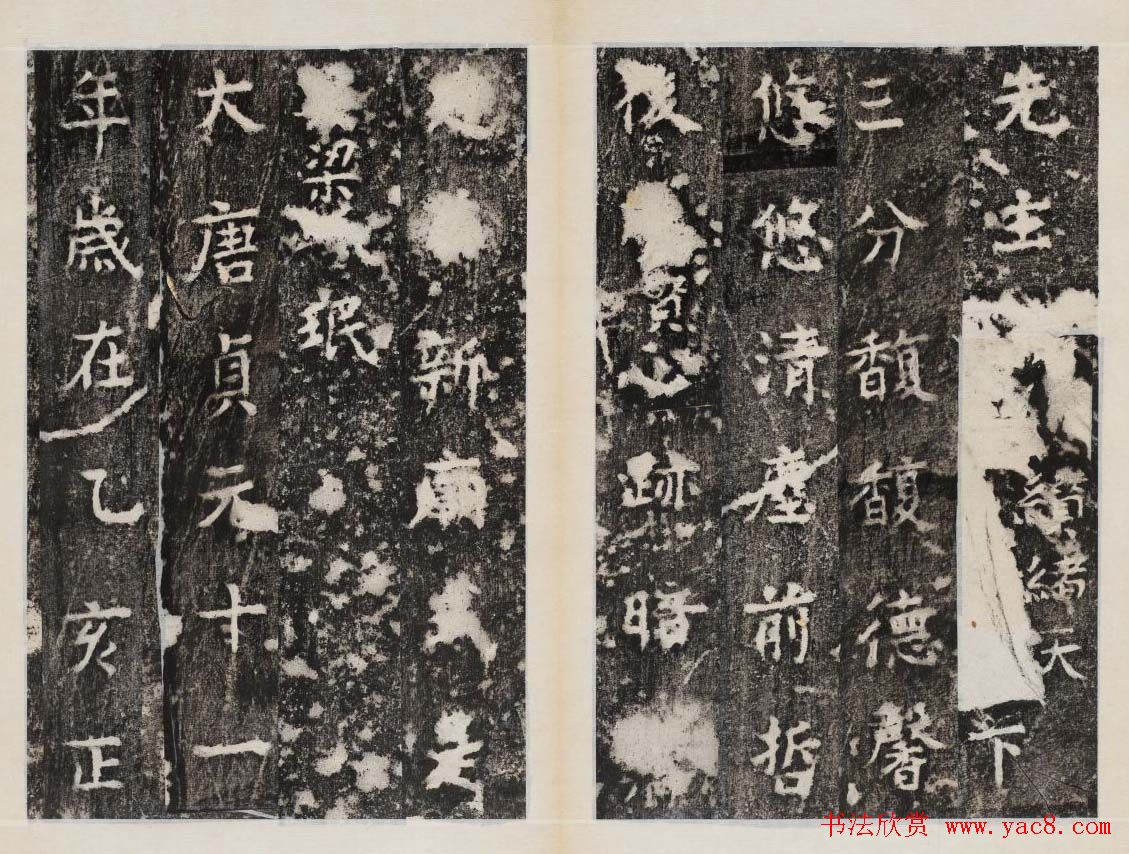 先主 緒緒天下
三分馥馥德馨
悠悠清塵前哲
後 賢 跡暗
新廟是
梁 珉
大唐貞元十一
年歲在乙亥正
书法欣赏 www.yac8.com